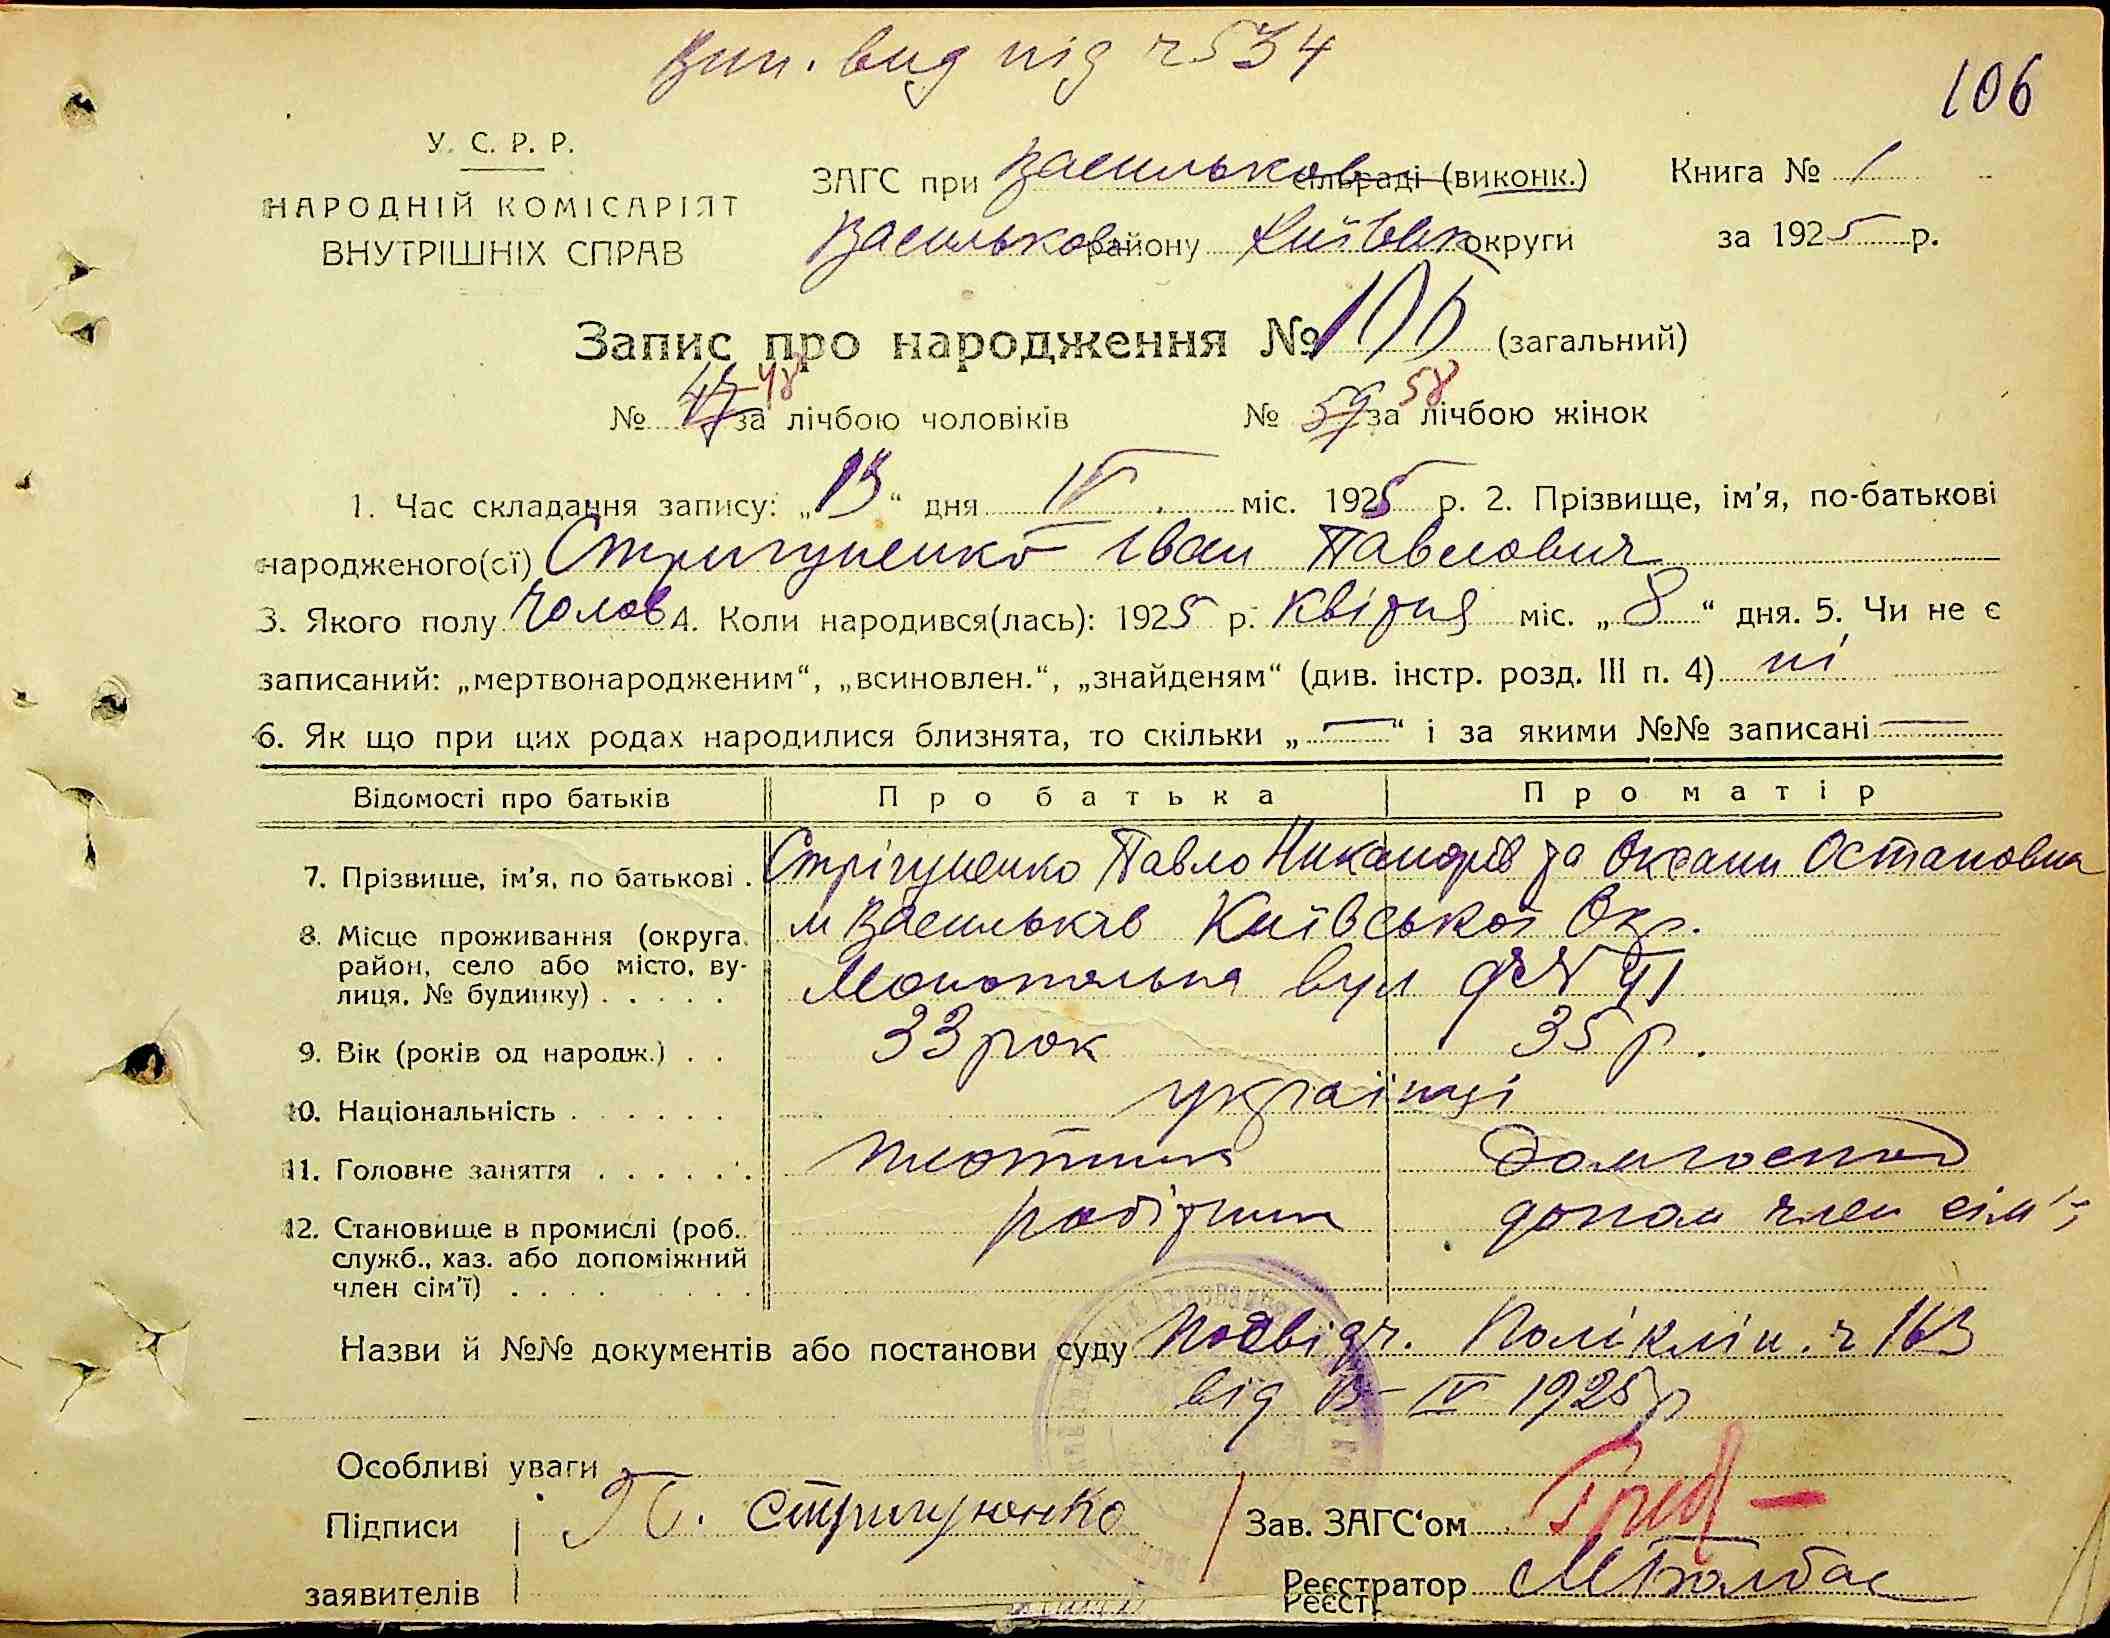 Вип. вид під ч 534
106
У. С. Р. Р.
НАРОДНІЙ КОМІСАРІЯТ
ВНУТРІШНІХ СПРАВ
ЗАГС при Васильков сільраді (виконк.)
Васильков району Київськ округи
Книга № 1
за 1925 р.
Запис про народження № 106 (загальний)
№ 47 48 за лічбою чоловіків № 59 58 за лічбою жінок
1. Час складання запису: „13“ дня IV міс. 1925 р. 2. Прізвище, ім'я, по-батькові
народженого(ої) Стригуненко Іван Павлович
3. Якого полу Чолов 4. Коли народився(лась): 1925 р. Квітня міс. „8“ дня. 5. Чи не є
записаний: „мертвонародженим“, „всиновлен.“, „знайденям“ (див. інстр. розд. III п. 4) ні
6. Як що при цих родах народилися близнята, то скільки „—“ і за якими №№ записані —
Відомості про батьків Про батька Про матір
7. Прізвище, ім'я, по батькові . Стрігуненко Павло Никанорів та Оксани Остановна
8. Місце проживання (округа, м Васильків Київської Окр.
район, село або місто, ву-
лиця, № будинку) . . . . . Монопольна вул
9. Вік (років од народж.) . . 33 рок 35 р.
10. Національність . . . . . . українці
11. Головне заняття . . . . . . плотник домгоспод
12. Становище в промислі (роб., робітник допом член сім'ї
служб., хаз. або допоміжний
член сім'ї) . . . . . . .
Назви й №№ документів або постанови суду Посвідч. Поліклін. ч 163
від 13 IV 1925 р
Особливі уваги —
Підписи П. Стригуненко Зав. ЗАГС'ом
заявителів Реєстратор МБалбас